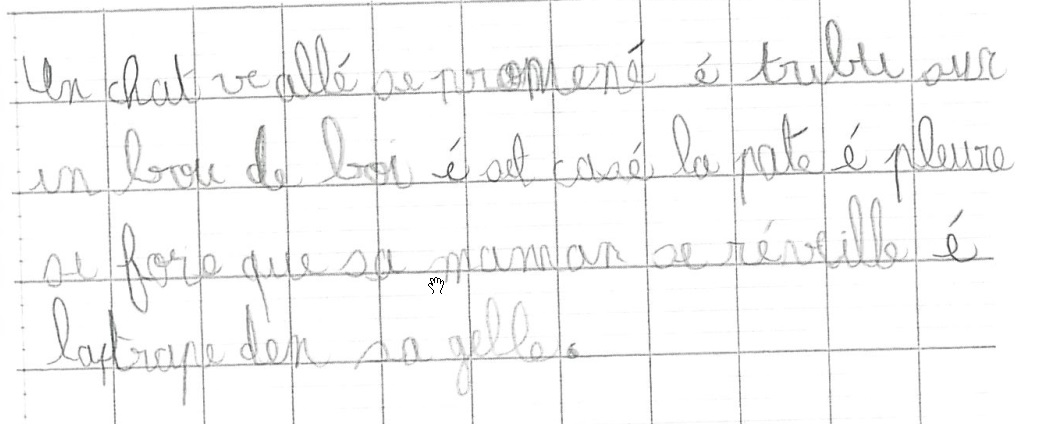 Un chat ve allé se promené é tubu sur
un bou de boi é set casé la pate é pleure
si fore que sa maman se réveille é
laptrape den sa gelle.